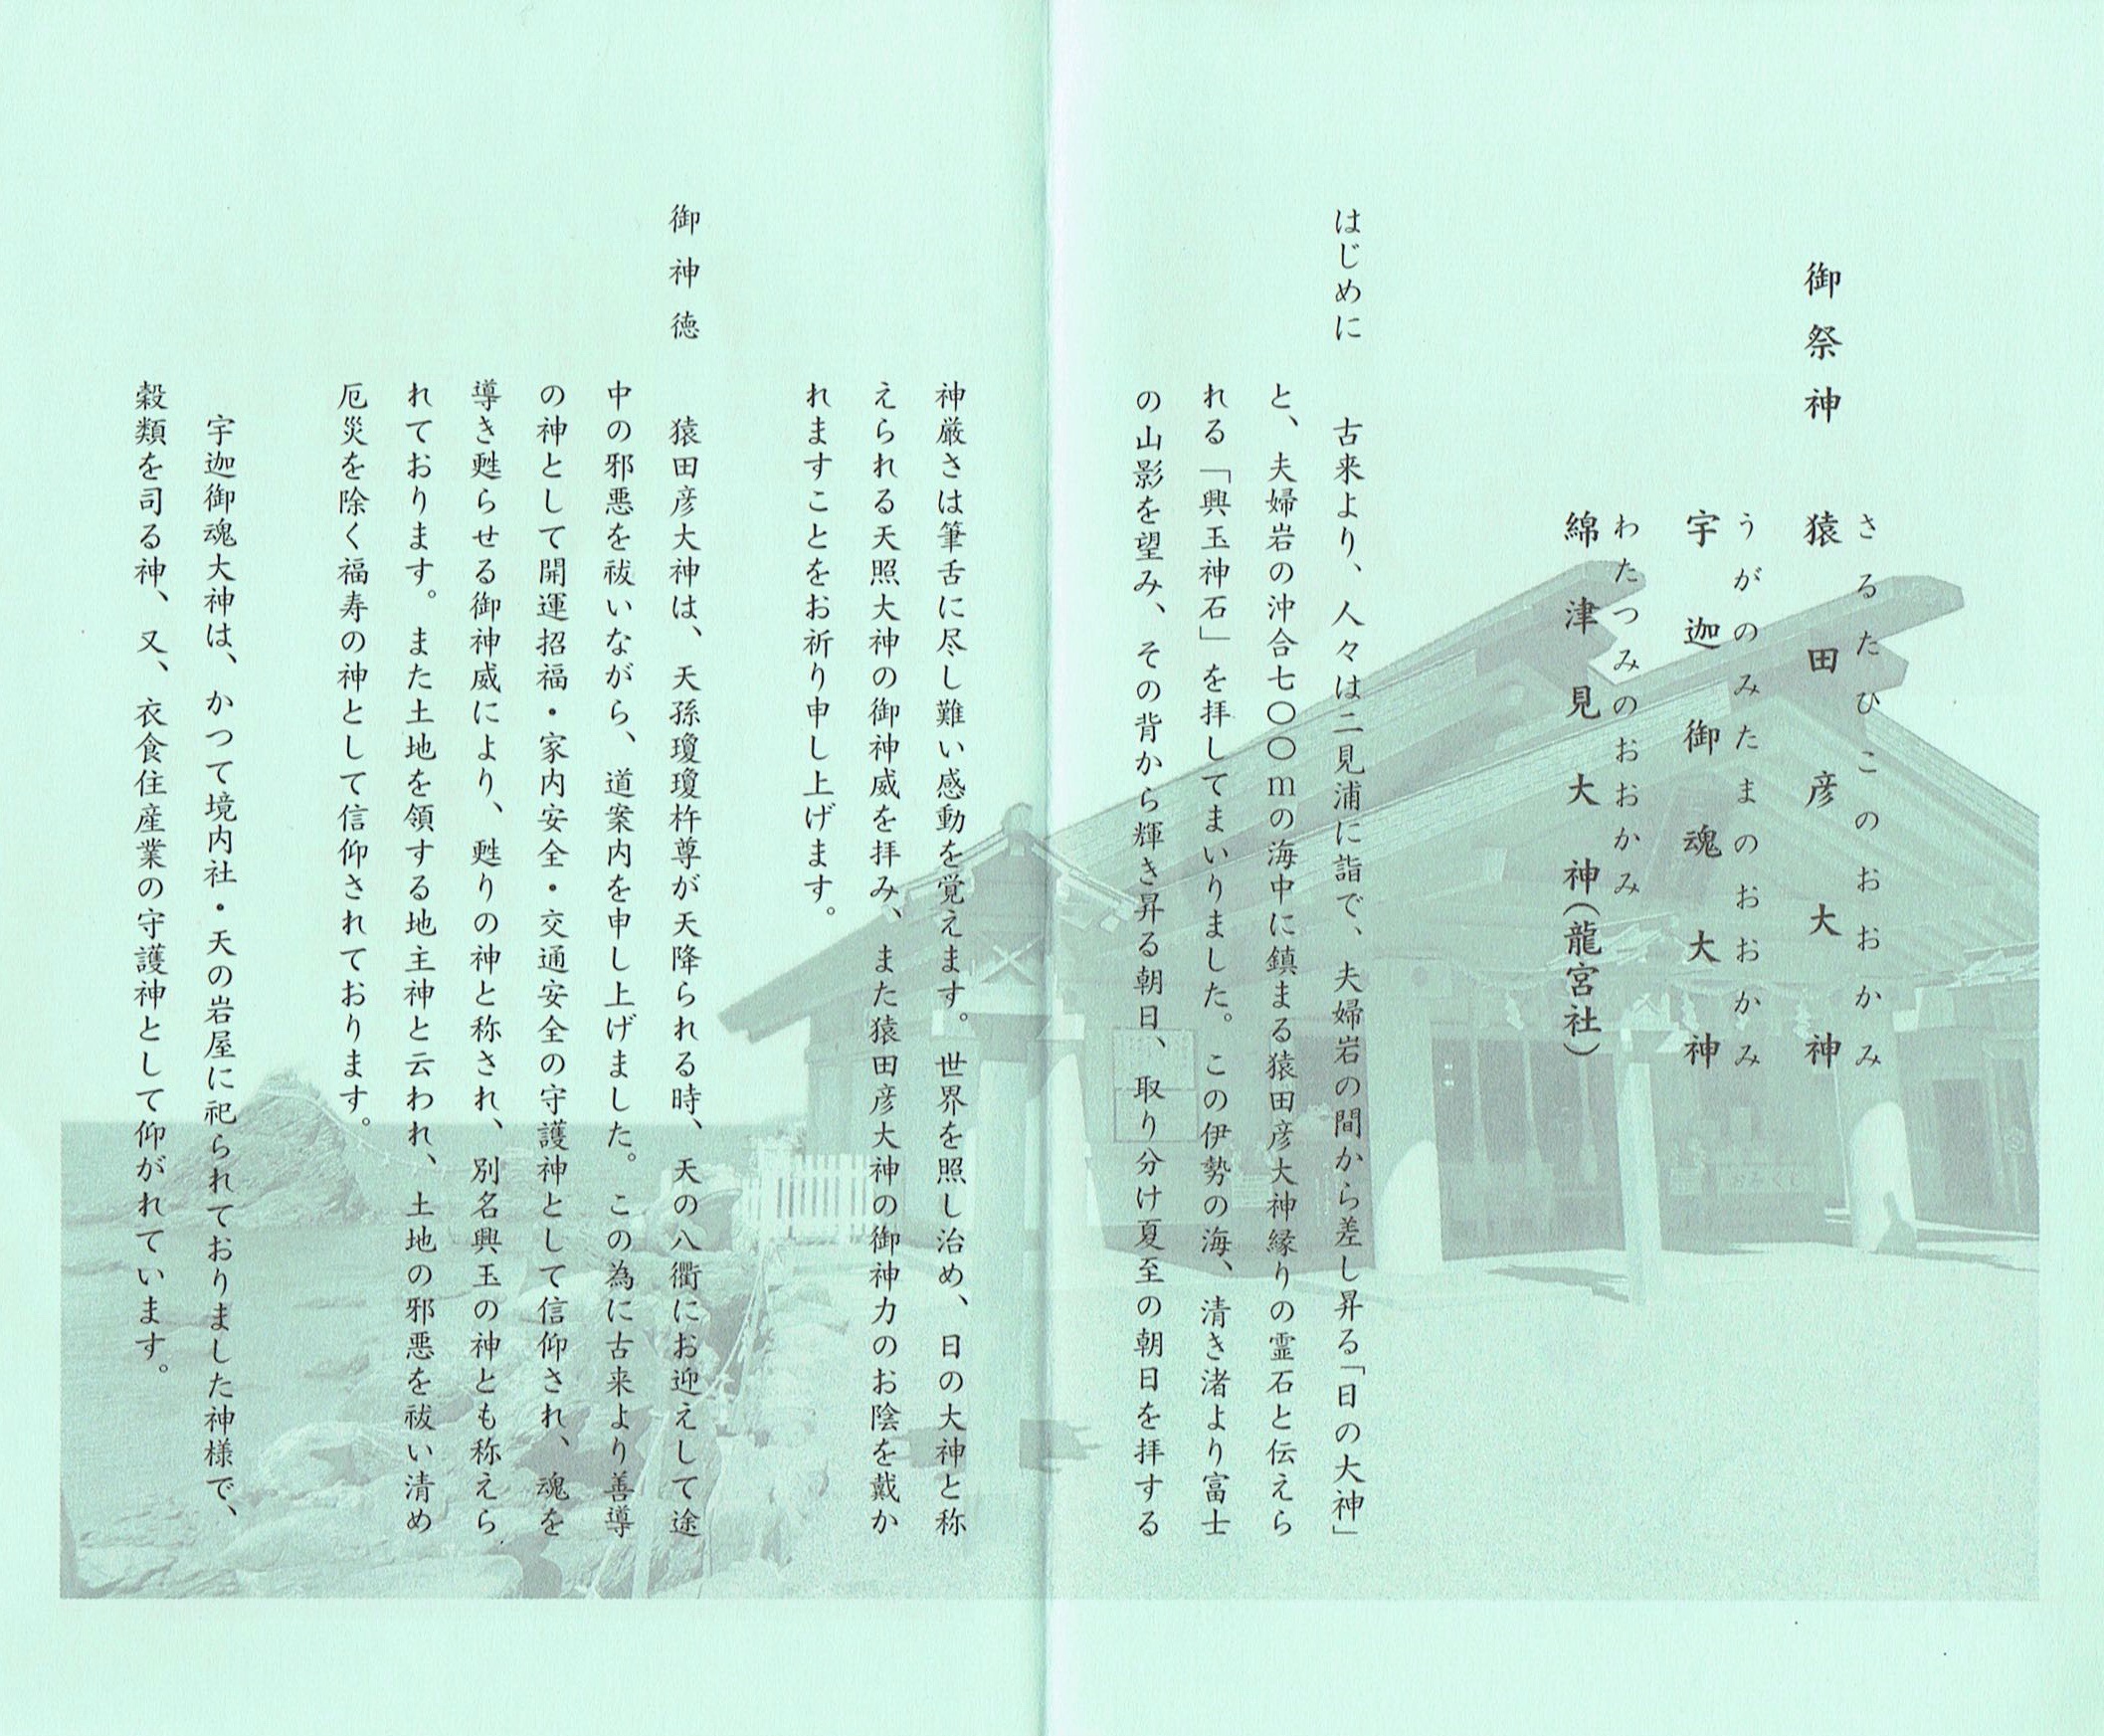 御祭神　猿田彦大神
さるたひこのおおかみ
宇迦御魂大神
うがのみたまのおおかみ
綿津見大神（龍宮社）
わたつみのおおかみ
はじめに　古来より、人々は二見浦に詣で、夫婦岩の間から差し昇る「日の大神」
と、夫婦岩の沖合七〇〇ｍの海中に鎮まる猿田彦大神縁りの霊石と伝えら
れる「興玉神石」を拝してまいりました。この伊勢の海、清き渚より富士
の山影を望み、その背から輝き昇る朝日、取り分け夏至の朝日を拝する
神厳さは筆舌に尽し難い感動を覚えます。世界を照し治め、日の大神と称
えられる天照大神の御神威を拝み、また猿田彦大神の御神力のお陰を戴か
れますことをお祈り申し上げます。
御神徳　猿田彦大神は、天孫瓊瓊杵尊が天降られる時、天の八衢にお迎えして途
中の邪悪を祓いながら、道案内を申し上げました。この為に古来より善導
の神として開運招福・家内安全・交通安全の守護神として信仰され、魂を
導き甦らせる御神威により、甦りの神と称され、別名興玉の神とも称えら
れております。また土地を領する地主神と云われ、土地の邪悪を祓い清め
厄災を除く福寿の神として信仰されております。
宇迦御魂大神は、かつて境内社・天の岩屋に祀られておりました神様で、
穀類を司る神、又、衣食住産業の守護神として仰がれています。
おみくじ